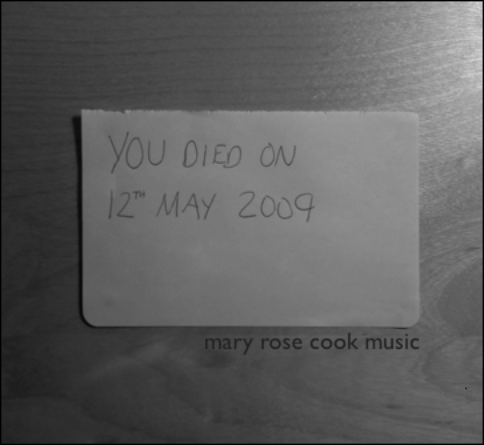 YOU DIED ON
12TH MAY 2009
mary rose cook music